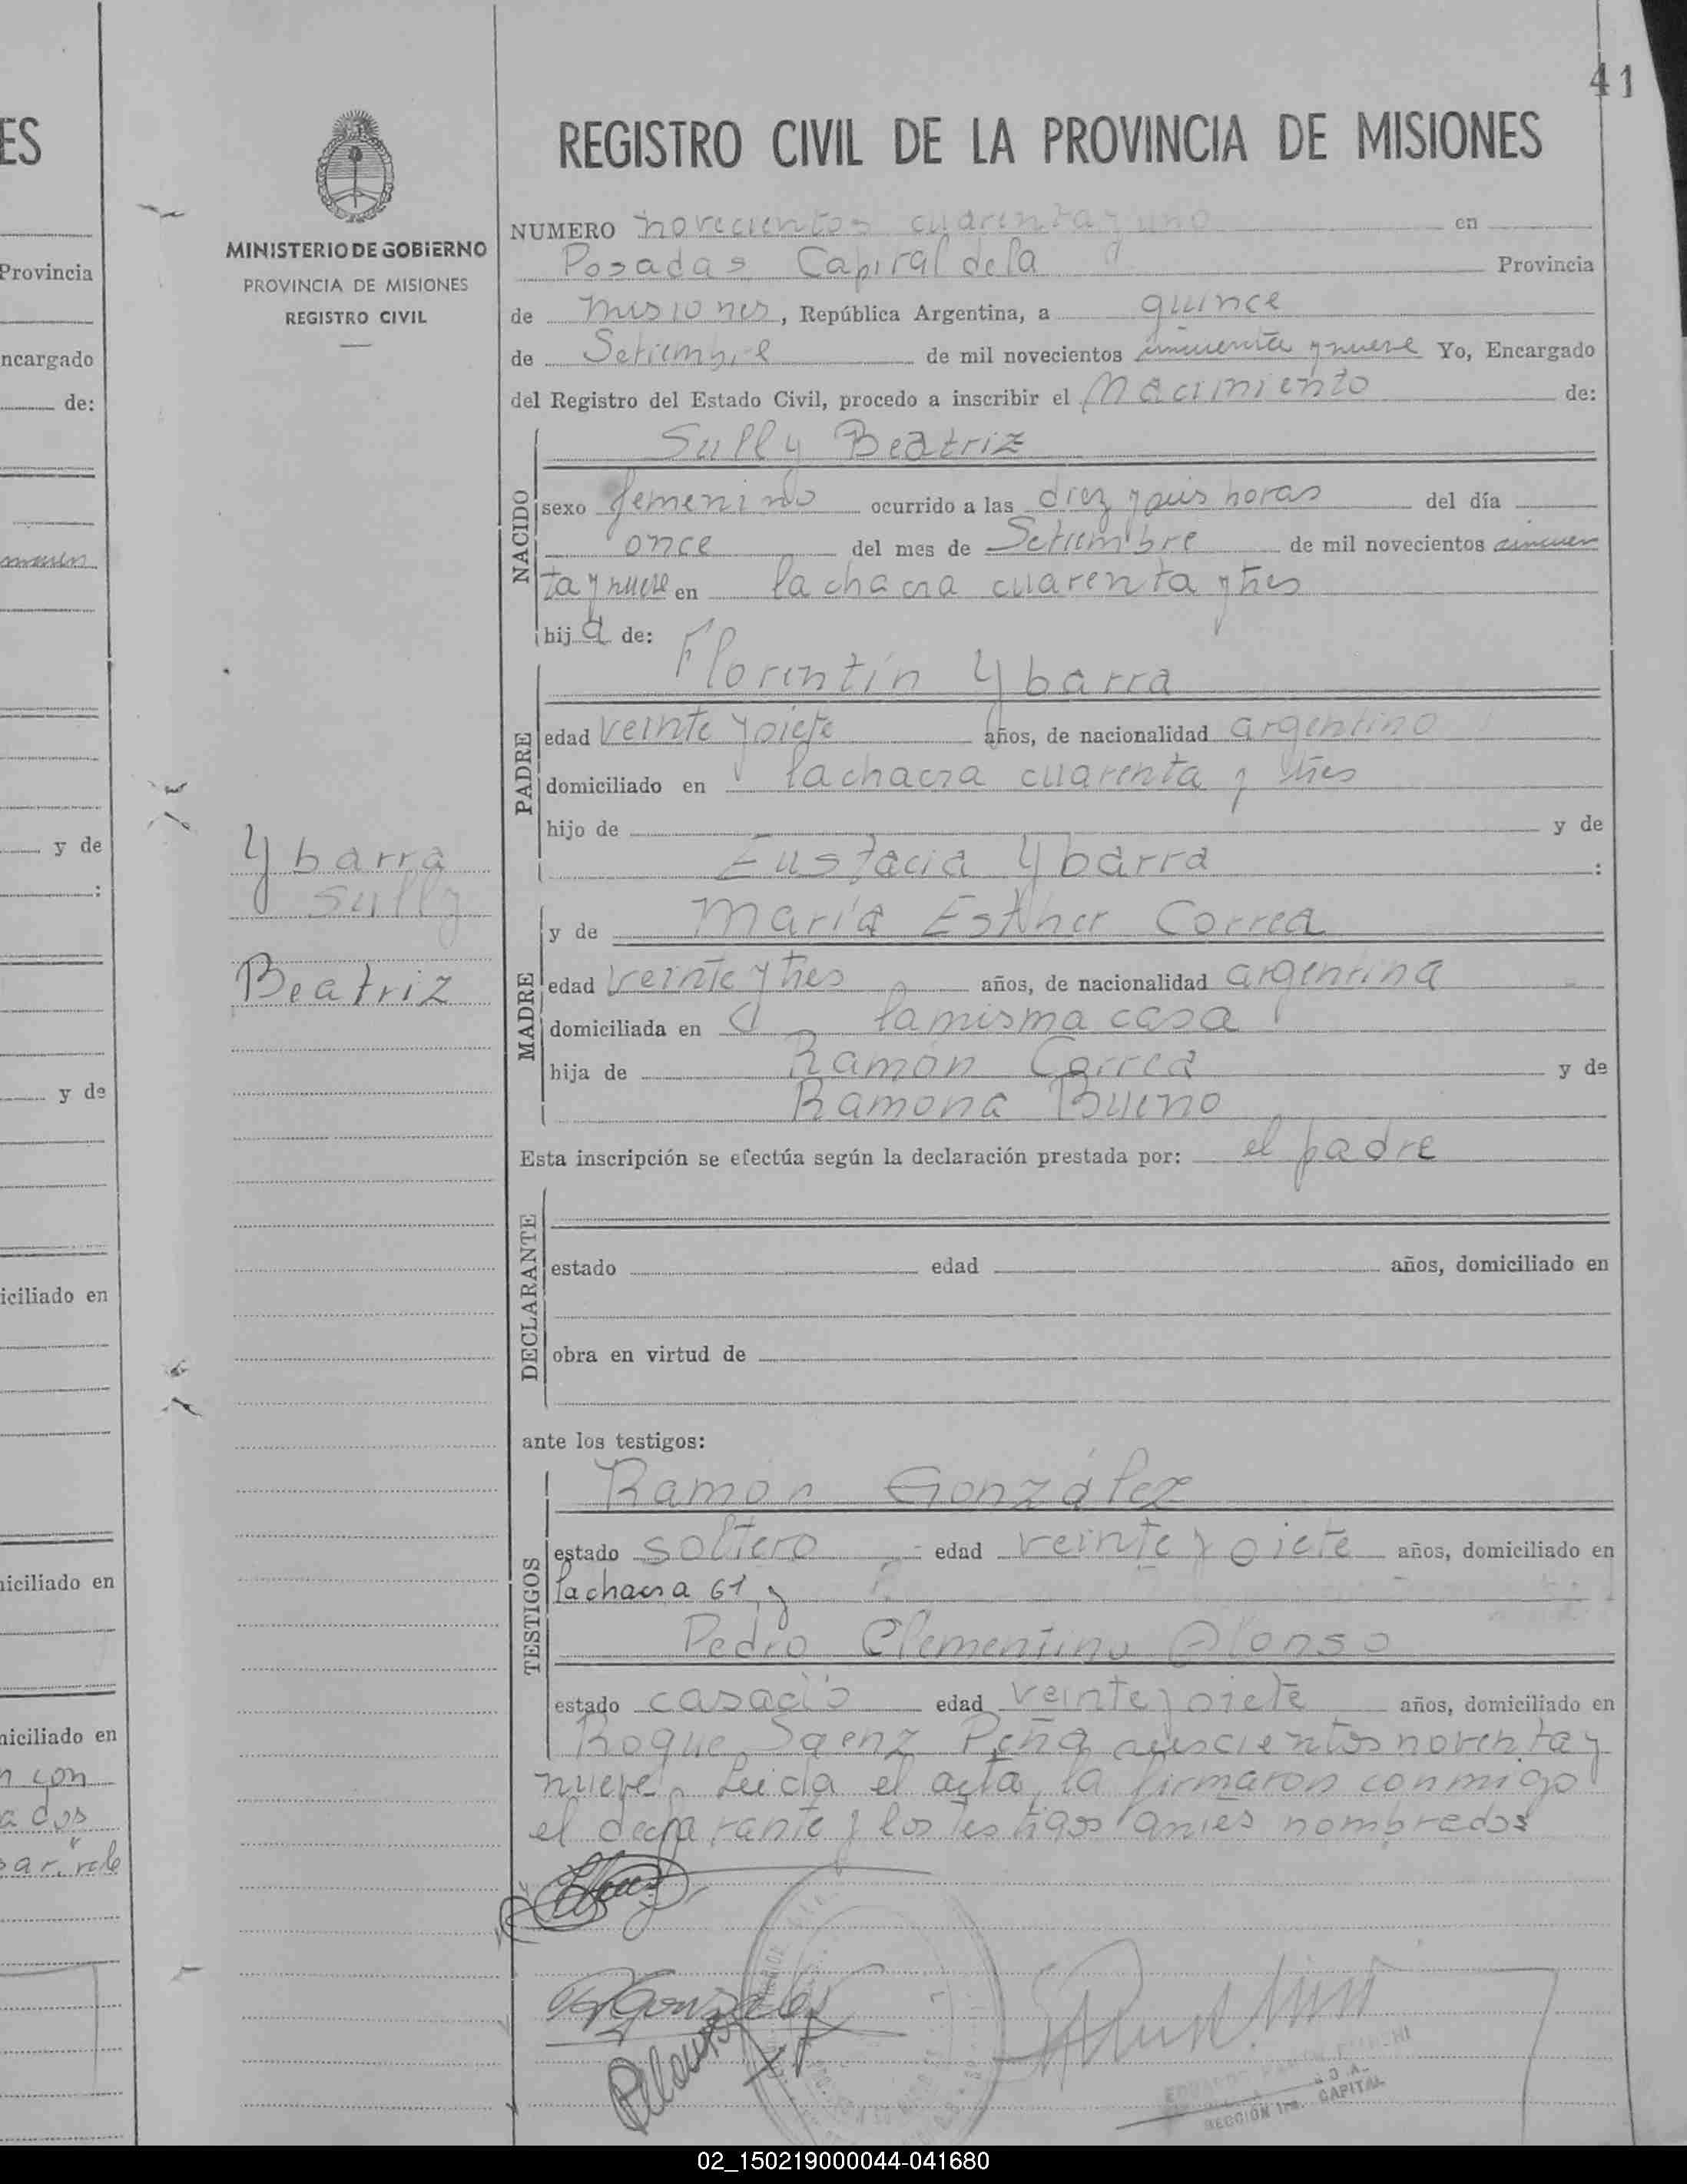 41
ES
Provincia
ncargado
de:
y de
:
y de
iciliado en
iciliado en
niciliado en
n con
a dos
MINISTERIO DE GOBIERNO
PROVINCIA DE MISIONES
REGISTRO CIVIL
Ybarra
Sully
Beatriz
REGISTRO CIVIL DE LA PROVINCIA DE MISIONES
NUMERO novecientos cuarenta y uno en
Posadas Capital de la Provincia
de Misiones, República Argentina, a quince
de Setiembre de mil novecientos cincuenta y nueve Yo, Encargado
del Registro del Estado Civil, procedo a inscribir el Nacimiento de:
Sully Beatriz
NACIDO
sexo femenino ocurrido a las diez y seis horas del día
once del mes de Setiembre de mil novecientos cincuen
ta y nueve en la chacra cuarenta y tres
hija de:
Florentín Ybarra
PADRE
edad veinte y siete años, de nacionalidad argentino
domiciliado en la chacra cuarenta y tres
hijo de y de
Eustacia Ybarra :
MADRE
y de María Esther Correa
edad veinte y tres años, de nacionalidad argentina
domiciliada en la misma casa
hija de Ramón Correa y de
Ramona Bueno
Esta inscripción se efectúa según la declaración prestada por: el padre
DECLARANTE
estado edad años, domiciliado en
obra en virtud de
ante los testigos:
TESTIGOS
Ramón González
estado soltero edad veinte y siete años, domiciliado en
la chacra 61 y
Pedro Clementino Alonso
estado casado edad veinte y siete años, domiciliado en
Roque Saenz Peña seiscientos noventa y
nueve. Leida el acta, la firmaron conmigo
el declarante y los testigos antes nombrados
RGonzalez
PCAlonso
SECCIÓN 1ra. CAPITAL
02_150219000044-041680